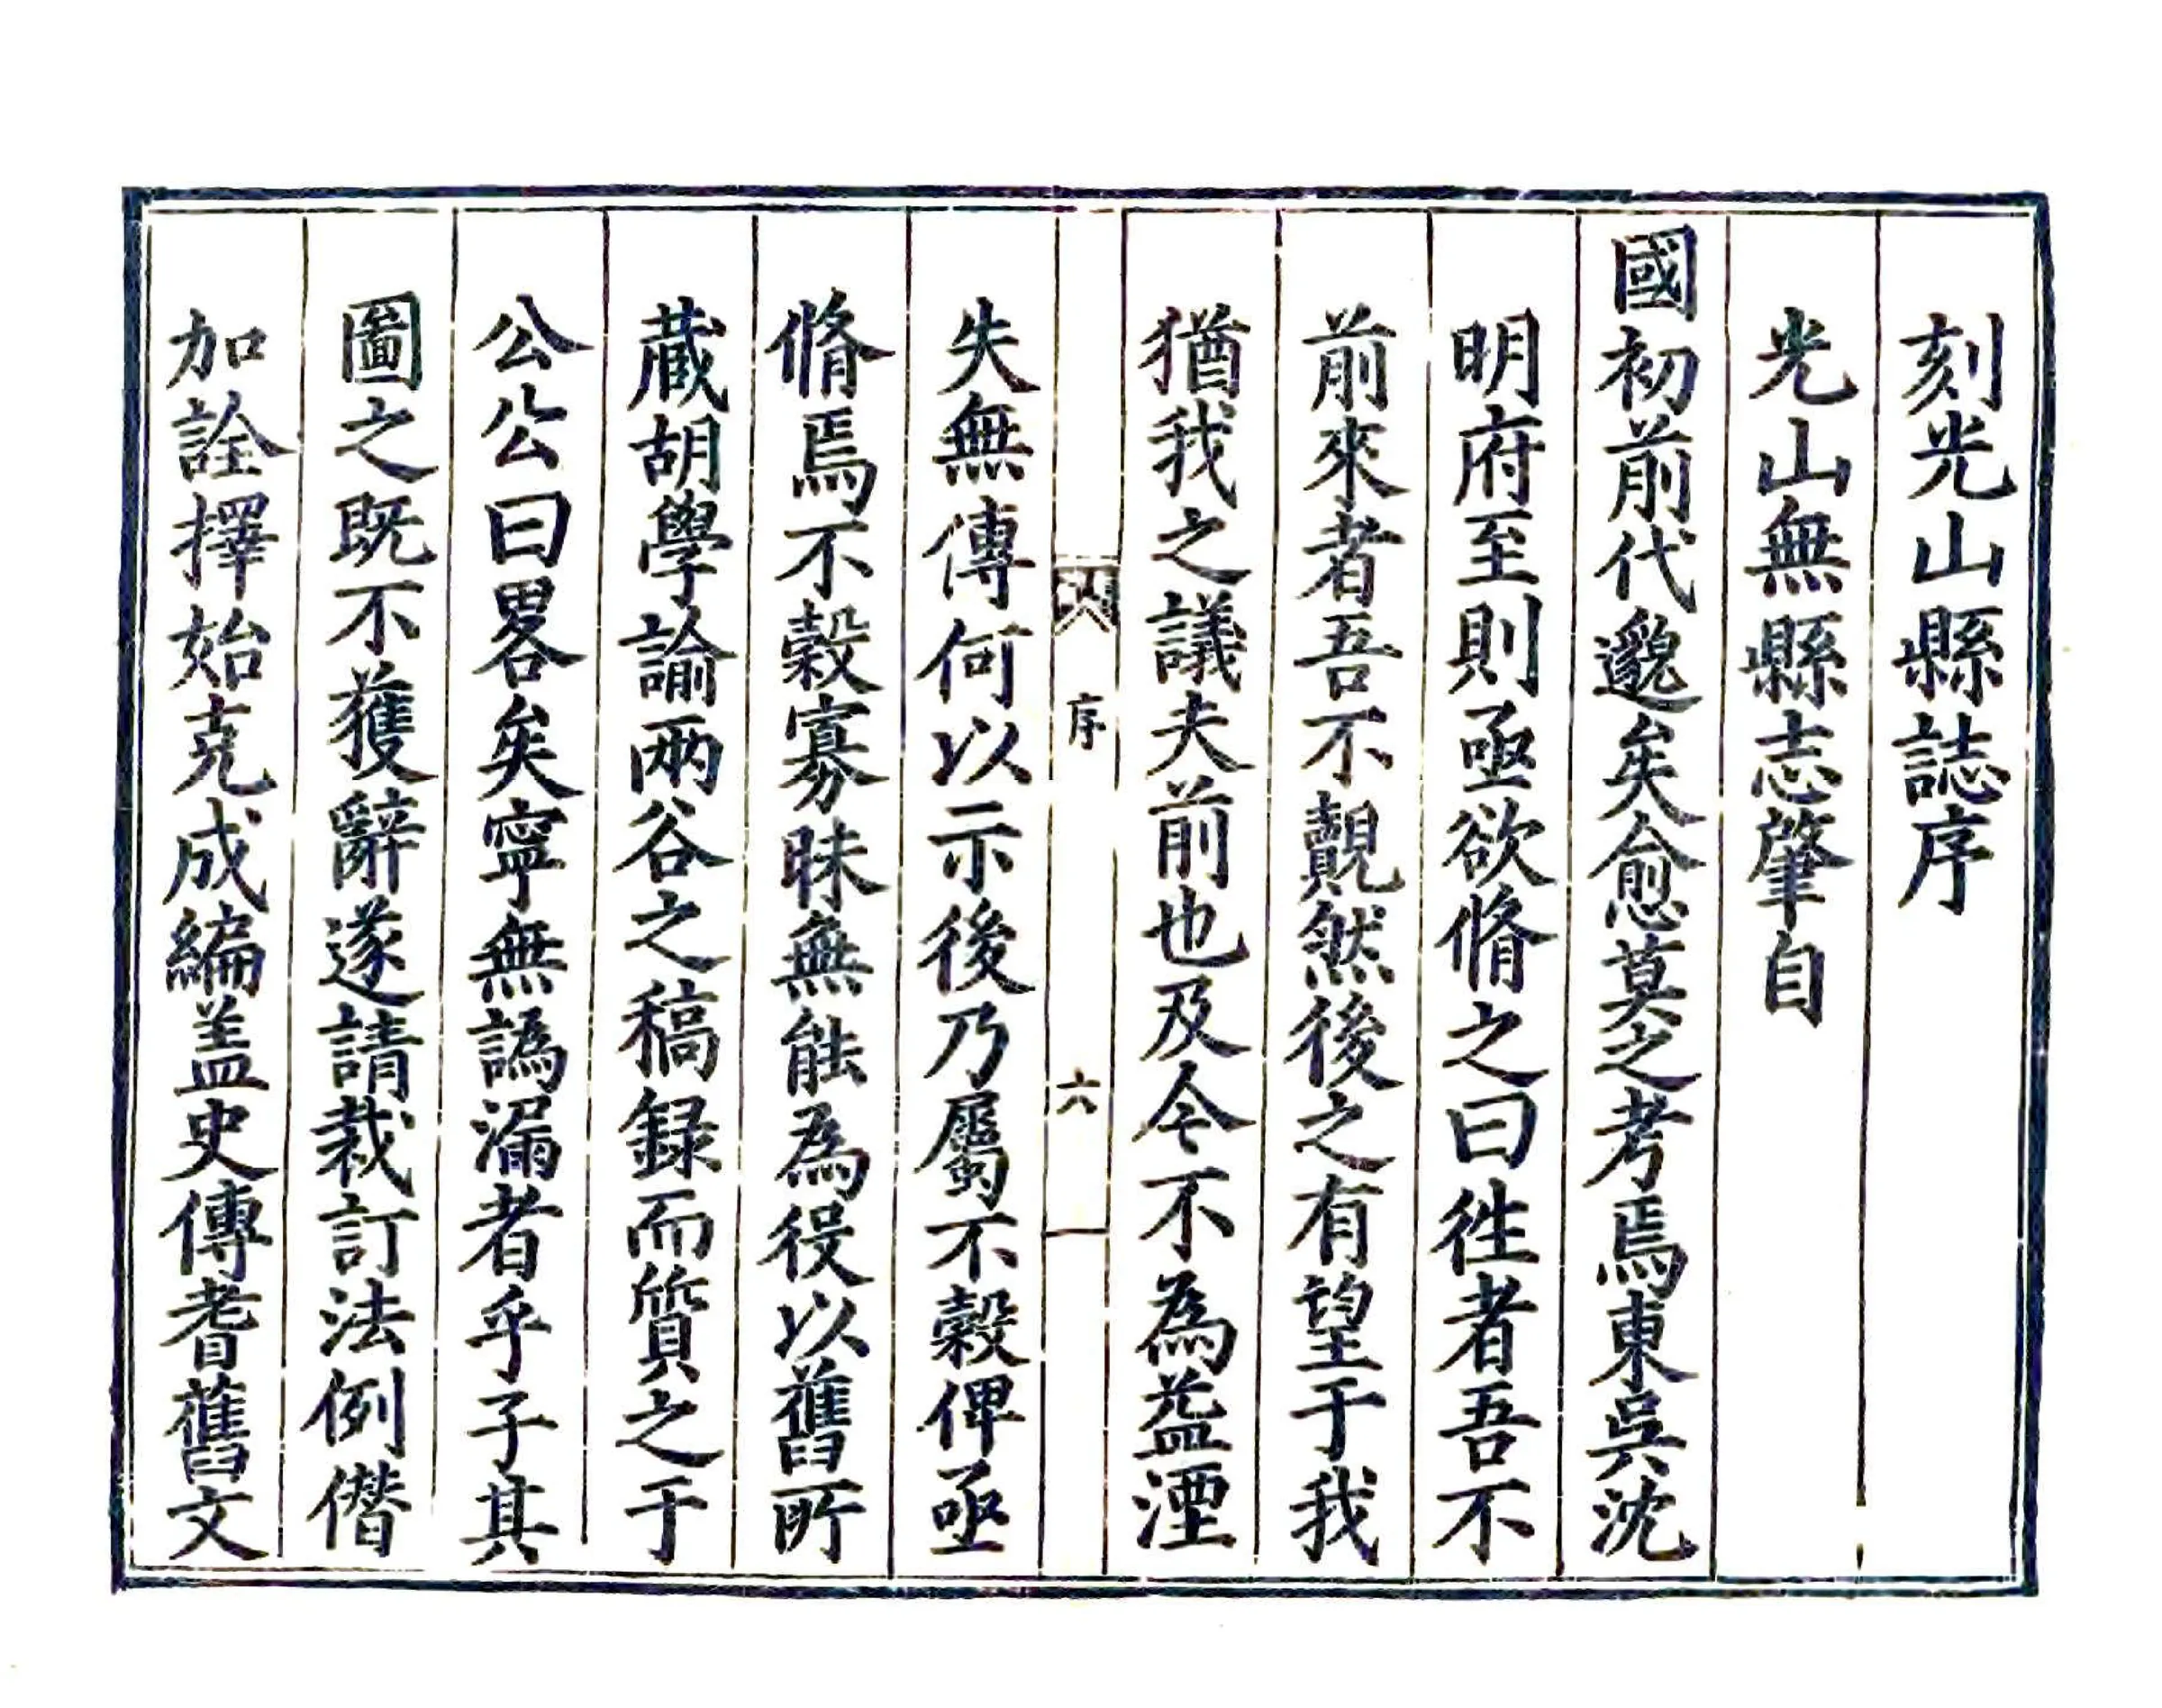 刻光山縣誌序
光山無縣志肇自
國初前代邈矣愈莫之考焉東吳沈
明府至則亟欲脩之曰徃者吾不
前來者吾不覿然後之有望于我
猶我之議夫前也及今不為益湮
序
六
失無傳何以示後乃屬不穀俾亟
脩焉不穀寡昧無能為役以舊所
蔵胡學諭兩谷之稿録而質之于
公公曰畧矣寧無譌漏者乎子其
圖之既不獲辭遂請裁訂法例僣
加詮擇始克成編盖史傳耆舊文